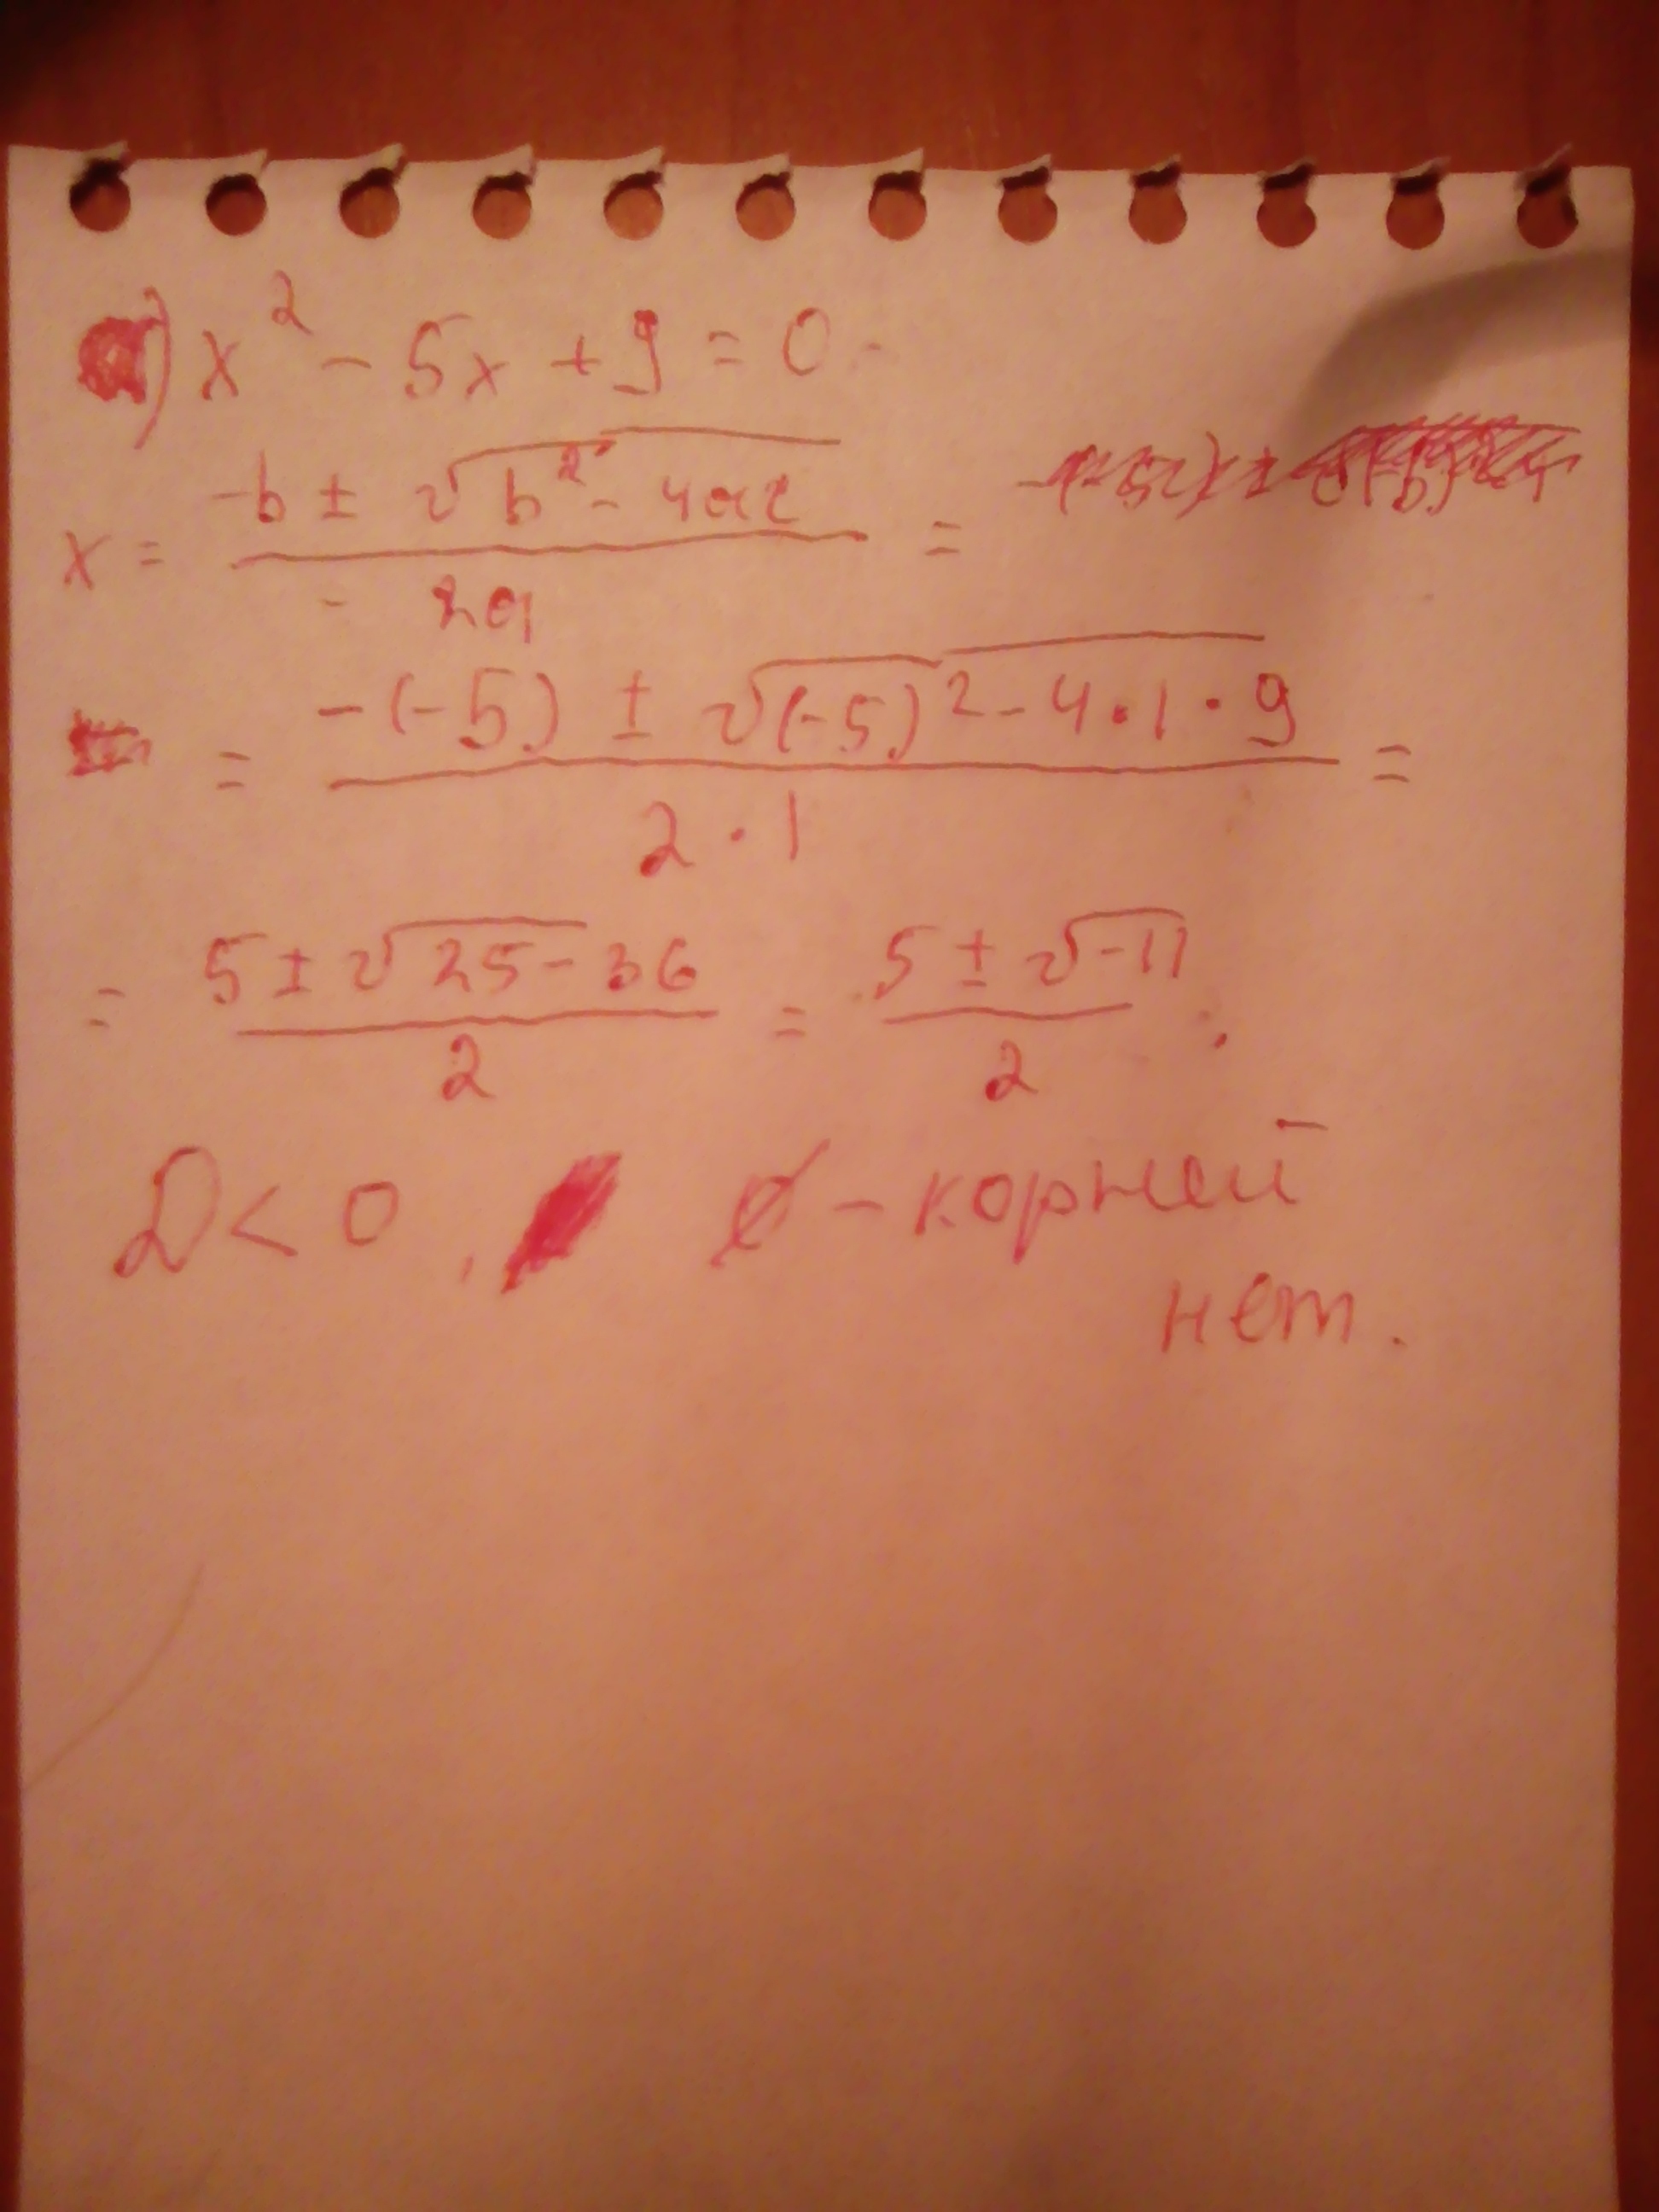 x² - 5x + 9 = 0
x = (-b ± √(b² - 4ac)) / 2a =
= (-(-5) ± √((-5)² - 4·1·9)) / (2·1) =
= (5 ± √(25 - 36)) / 2 = (5 ± √-11) / 2 .
D < 0, ∅ - корней
нет.